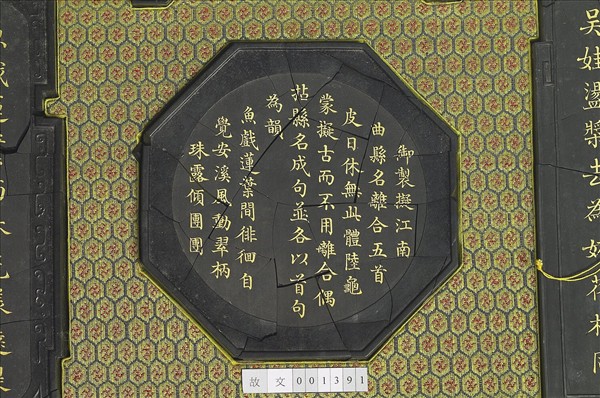 吳娃盪槳去為
御製擬江南
曲縣名離合五首
皮日休無此體陸龜
蒙擬古而不用離合偶
拈縣名成句並各以首句
為韻
魚戲蓮葉間徘徊自
覺安溪風動翠柄
珠露傾團團
故文001391